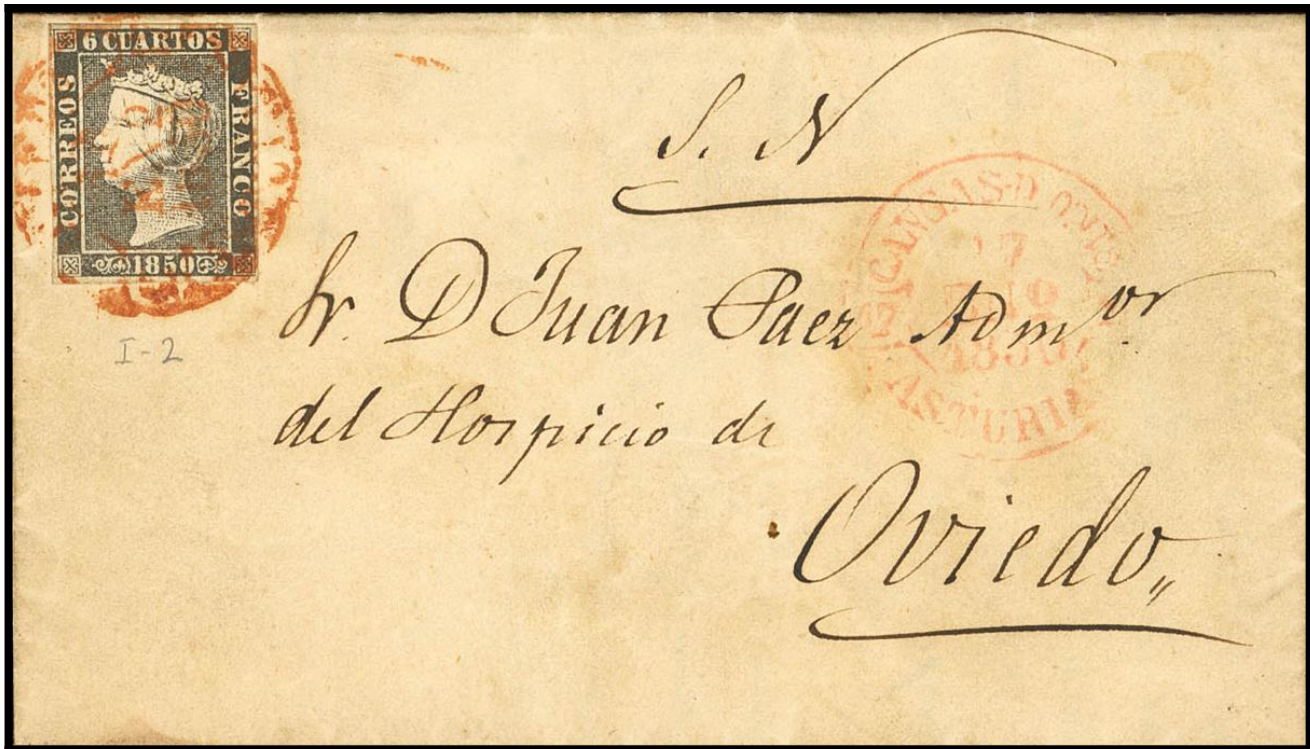 6 CUARTOS
CORREOS
FRANCO
1850
I-2
S. N
CANGAS-D ONIS
1850
ASTURIAS
Sr. D Juan Paez Admor.
del Hospicio de
Oviedo,,